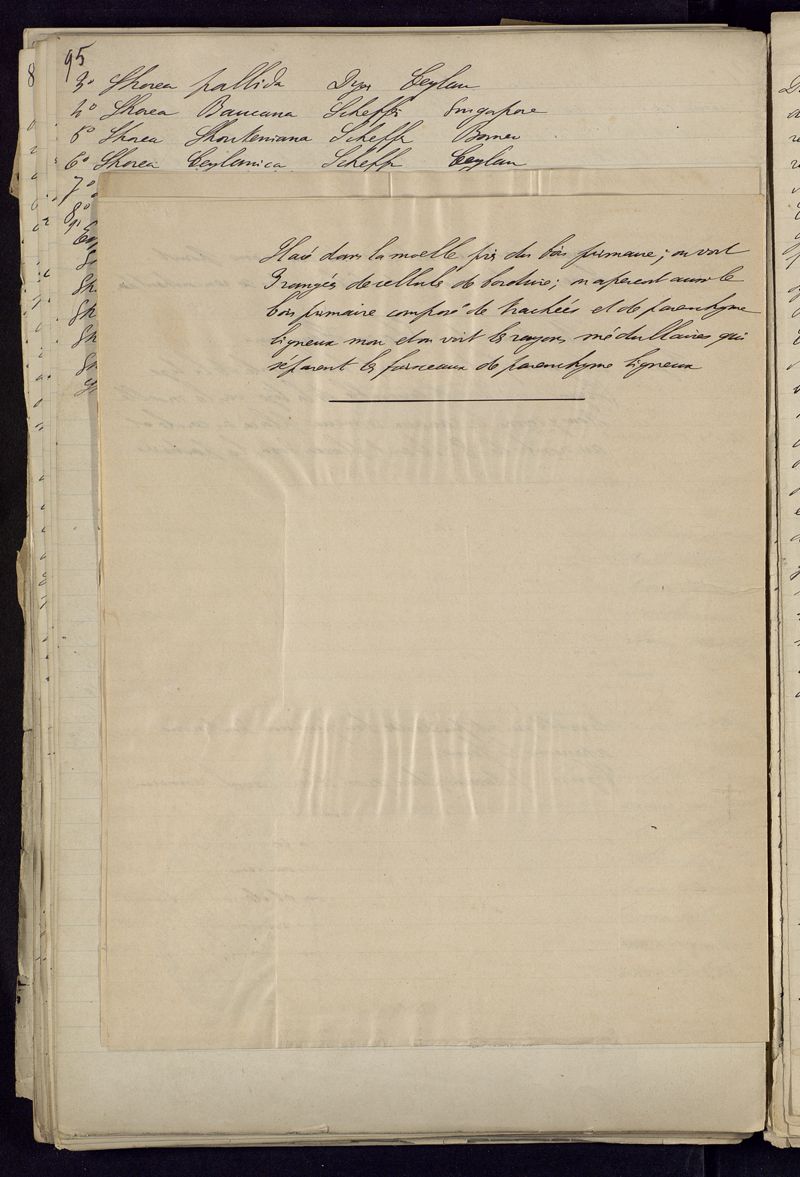 95
3° Shorea pallida Dyer Ceylan
4° Shorea Bancana Scheffr Singapore
5° Shorea Shouteniana Scheffr Borneo
6° Shorea Ceylanica Scheffr Ceylan
7°
8°
9°
Placé dans la moelle près du bois primaire ; on voit
3 rangées de cellules de bordure ; on aperçoit aussi le
bois primaire composé de trachées et de parenchyme
ligneux mou et on voit les rayons médullaires qui
séparent les faisceaux de parenchyme ligneux